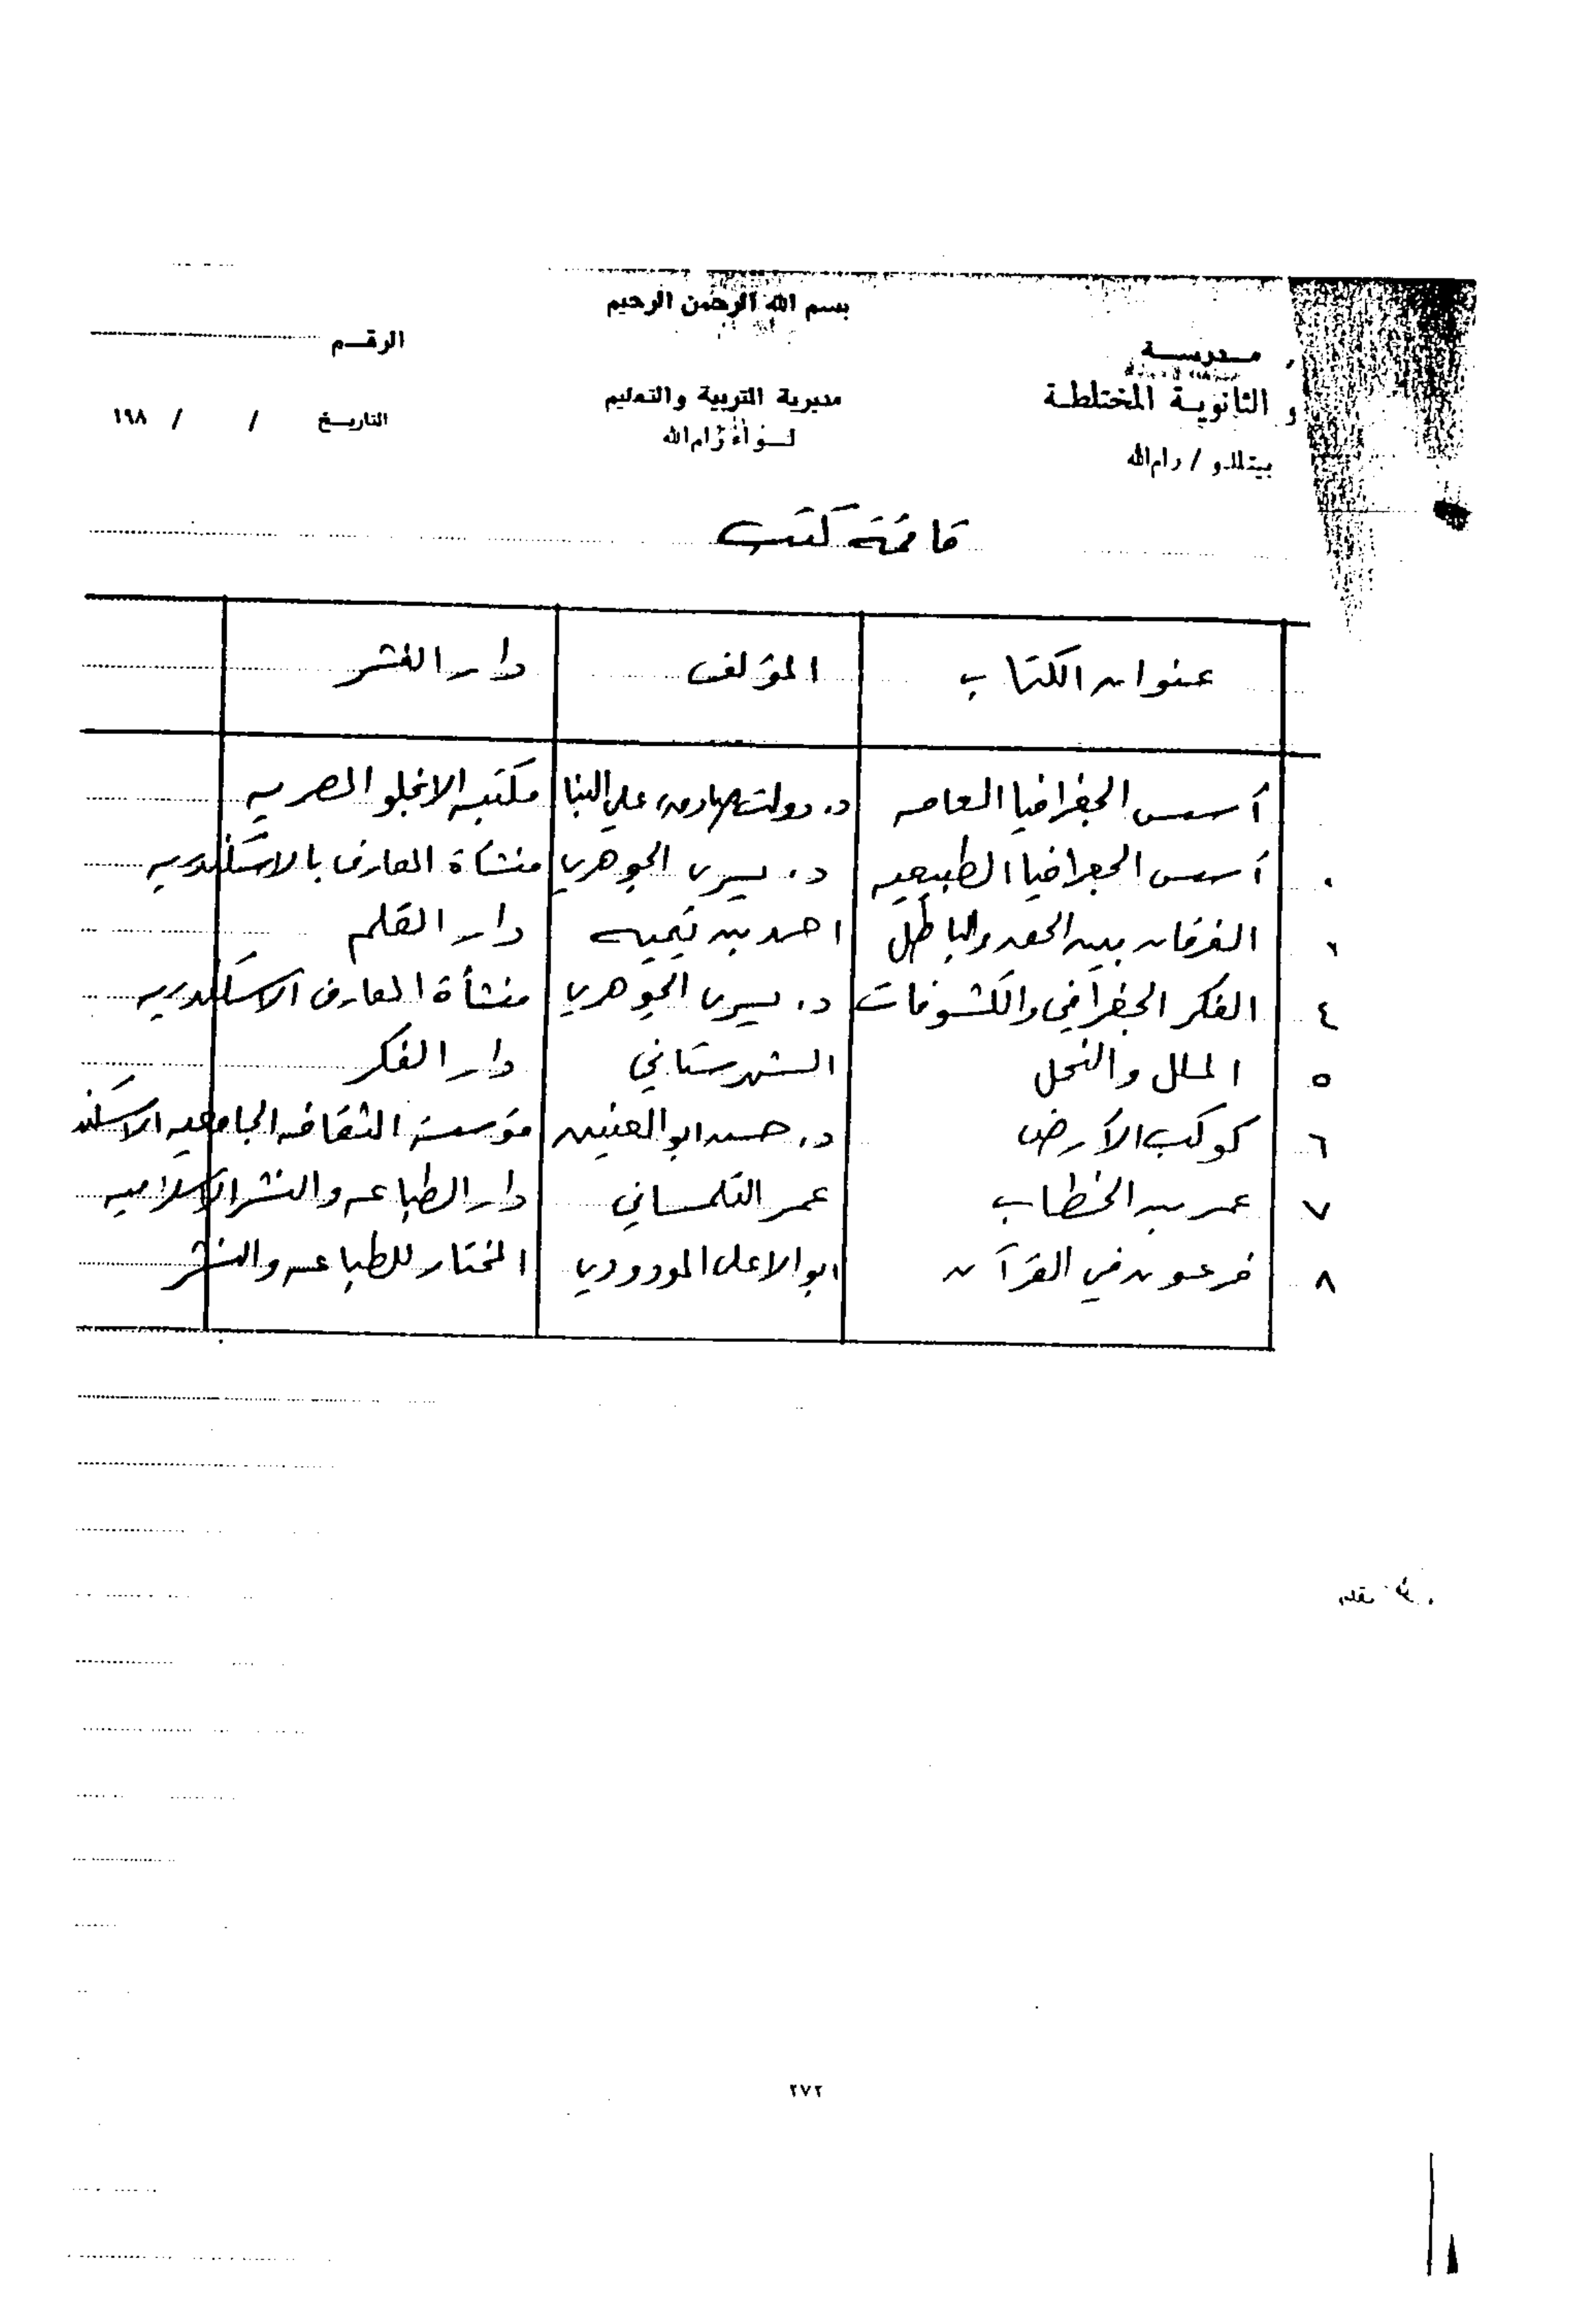 بسم الله الرحمن الرحيم
مدرسة
و الثانوية المختلطة
بيتللو / رام الله
مديرية التربية والتعليم
لواء رام الله
الرقم
التاريخ / / ١٩٨
قائمة كتب
عنوان الكتاب المؤلف دار النشر
أسس الجغرافيا العامه د. دولت صادق، علي البنا مكتبه الانجلو المصريه
أسس الجغرافيا الطبيعيه د. يسرى الجوهري منشأة المعارف بالاسكندريه
الفرقان بين الحق والباطل احمد بن تيميه دار القلم
٤ الفكر الجغرافي والكشوفات د. يسرى الجوهري منشأة المعارف الاسكندريه
٥ الملل والنحل الشهرستاني دار الفكر
٦ كوكب الأرض د. حسن ابو العنين مؤسسة الثقافه الجامعيه الاسكند
٧ عمر بن الخطاب عمر التلمساني دار الطباعه والنشر الاسلاميه
٨ فرعون في القرآن ابو الاعلى المودودي المختار للطباعه والنشر
٢٧٢